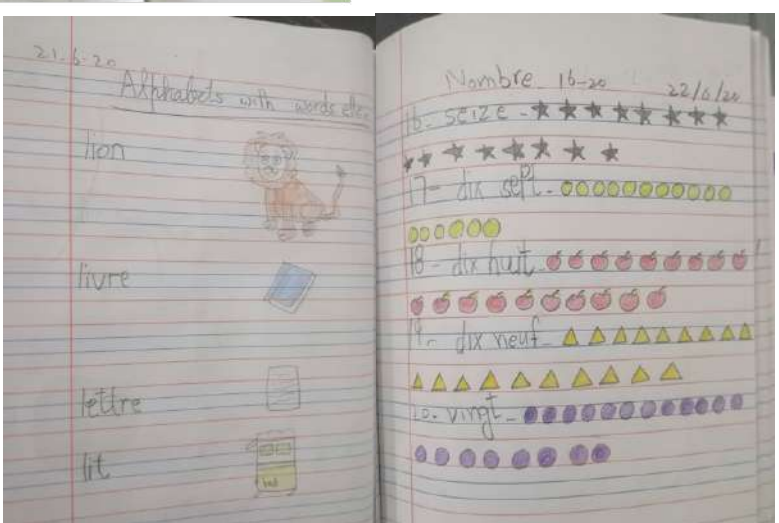 21.6.20
Alphabets with words
lion
livre
lettre
lit
Nombre 16-20
22/6/20
16- seize -
17- dix sept -
18- dix huit -
19- dix neuf -
20- vingt -